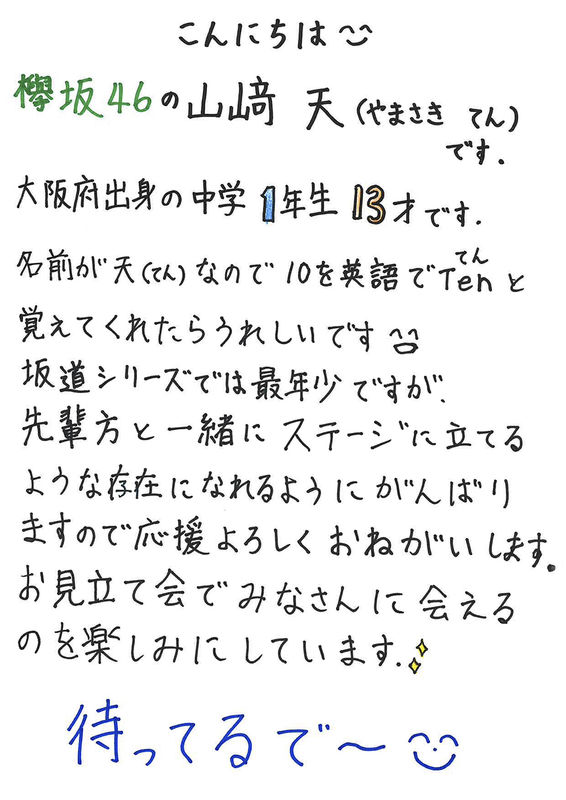 こんにちは
欅坂46の山﨑 天(やまさき てん)
です.
大阪府出身の中学1年生13才です.
てん
名前が天(てん)なので10を英語でTenと
覚えてくれたらうれしいです
坂道シリーズでは最年少ですが、
先輩方と一緒にステージに立てる
ような存在になれるようにがんばり
ますので応援よろしくおねがいします。
お見立て会でみなさんに会える
のを楽しみにしています.
待ってるで〜